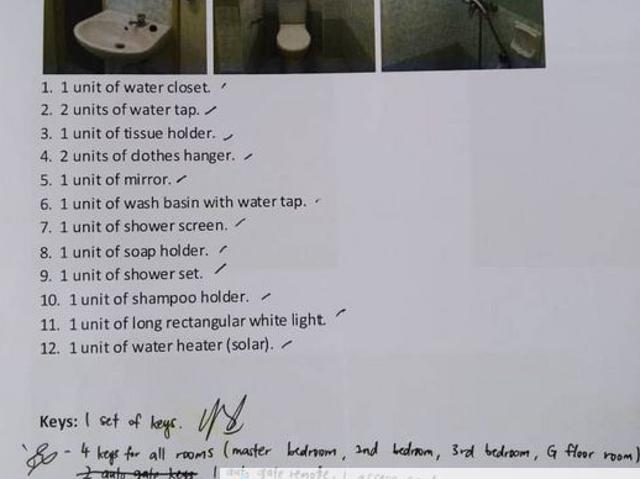 1. 1 unit of water closet.
2. 2 units of water tap.
3. 1 unit of tissue holder.
4. 2 units of clothes hanger.
5. 1 unit of mirror.
6. 1 unit of wash basin with water tap.
7. 1 unit of shower screen.
8. 1 unit of soap holder.
9. 1 unit of shower set.
10. 1 unit of shampoo holder.
11. 1 unit of long rectangular white light.
12. 1 unit of water heater (solar).
Keys: 1 set of keys.
- 4 keys for all rooms (master bedroom, 2nd bedroom, 3rd bedroom, G floor room)
2 auto gate keys 1 auto gate remote, 1